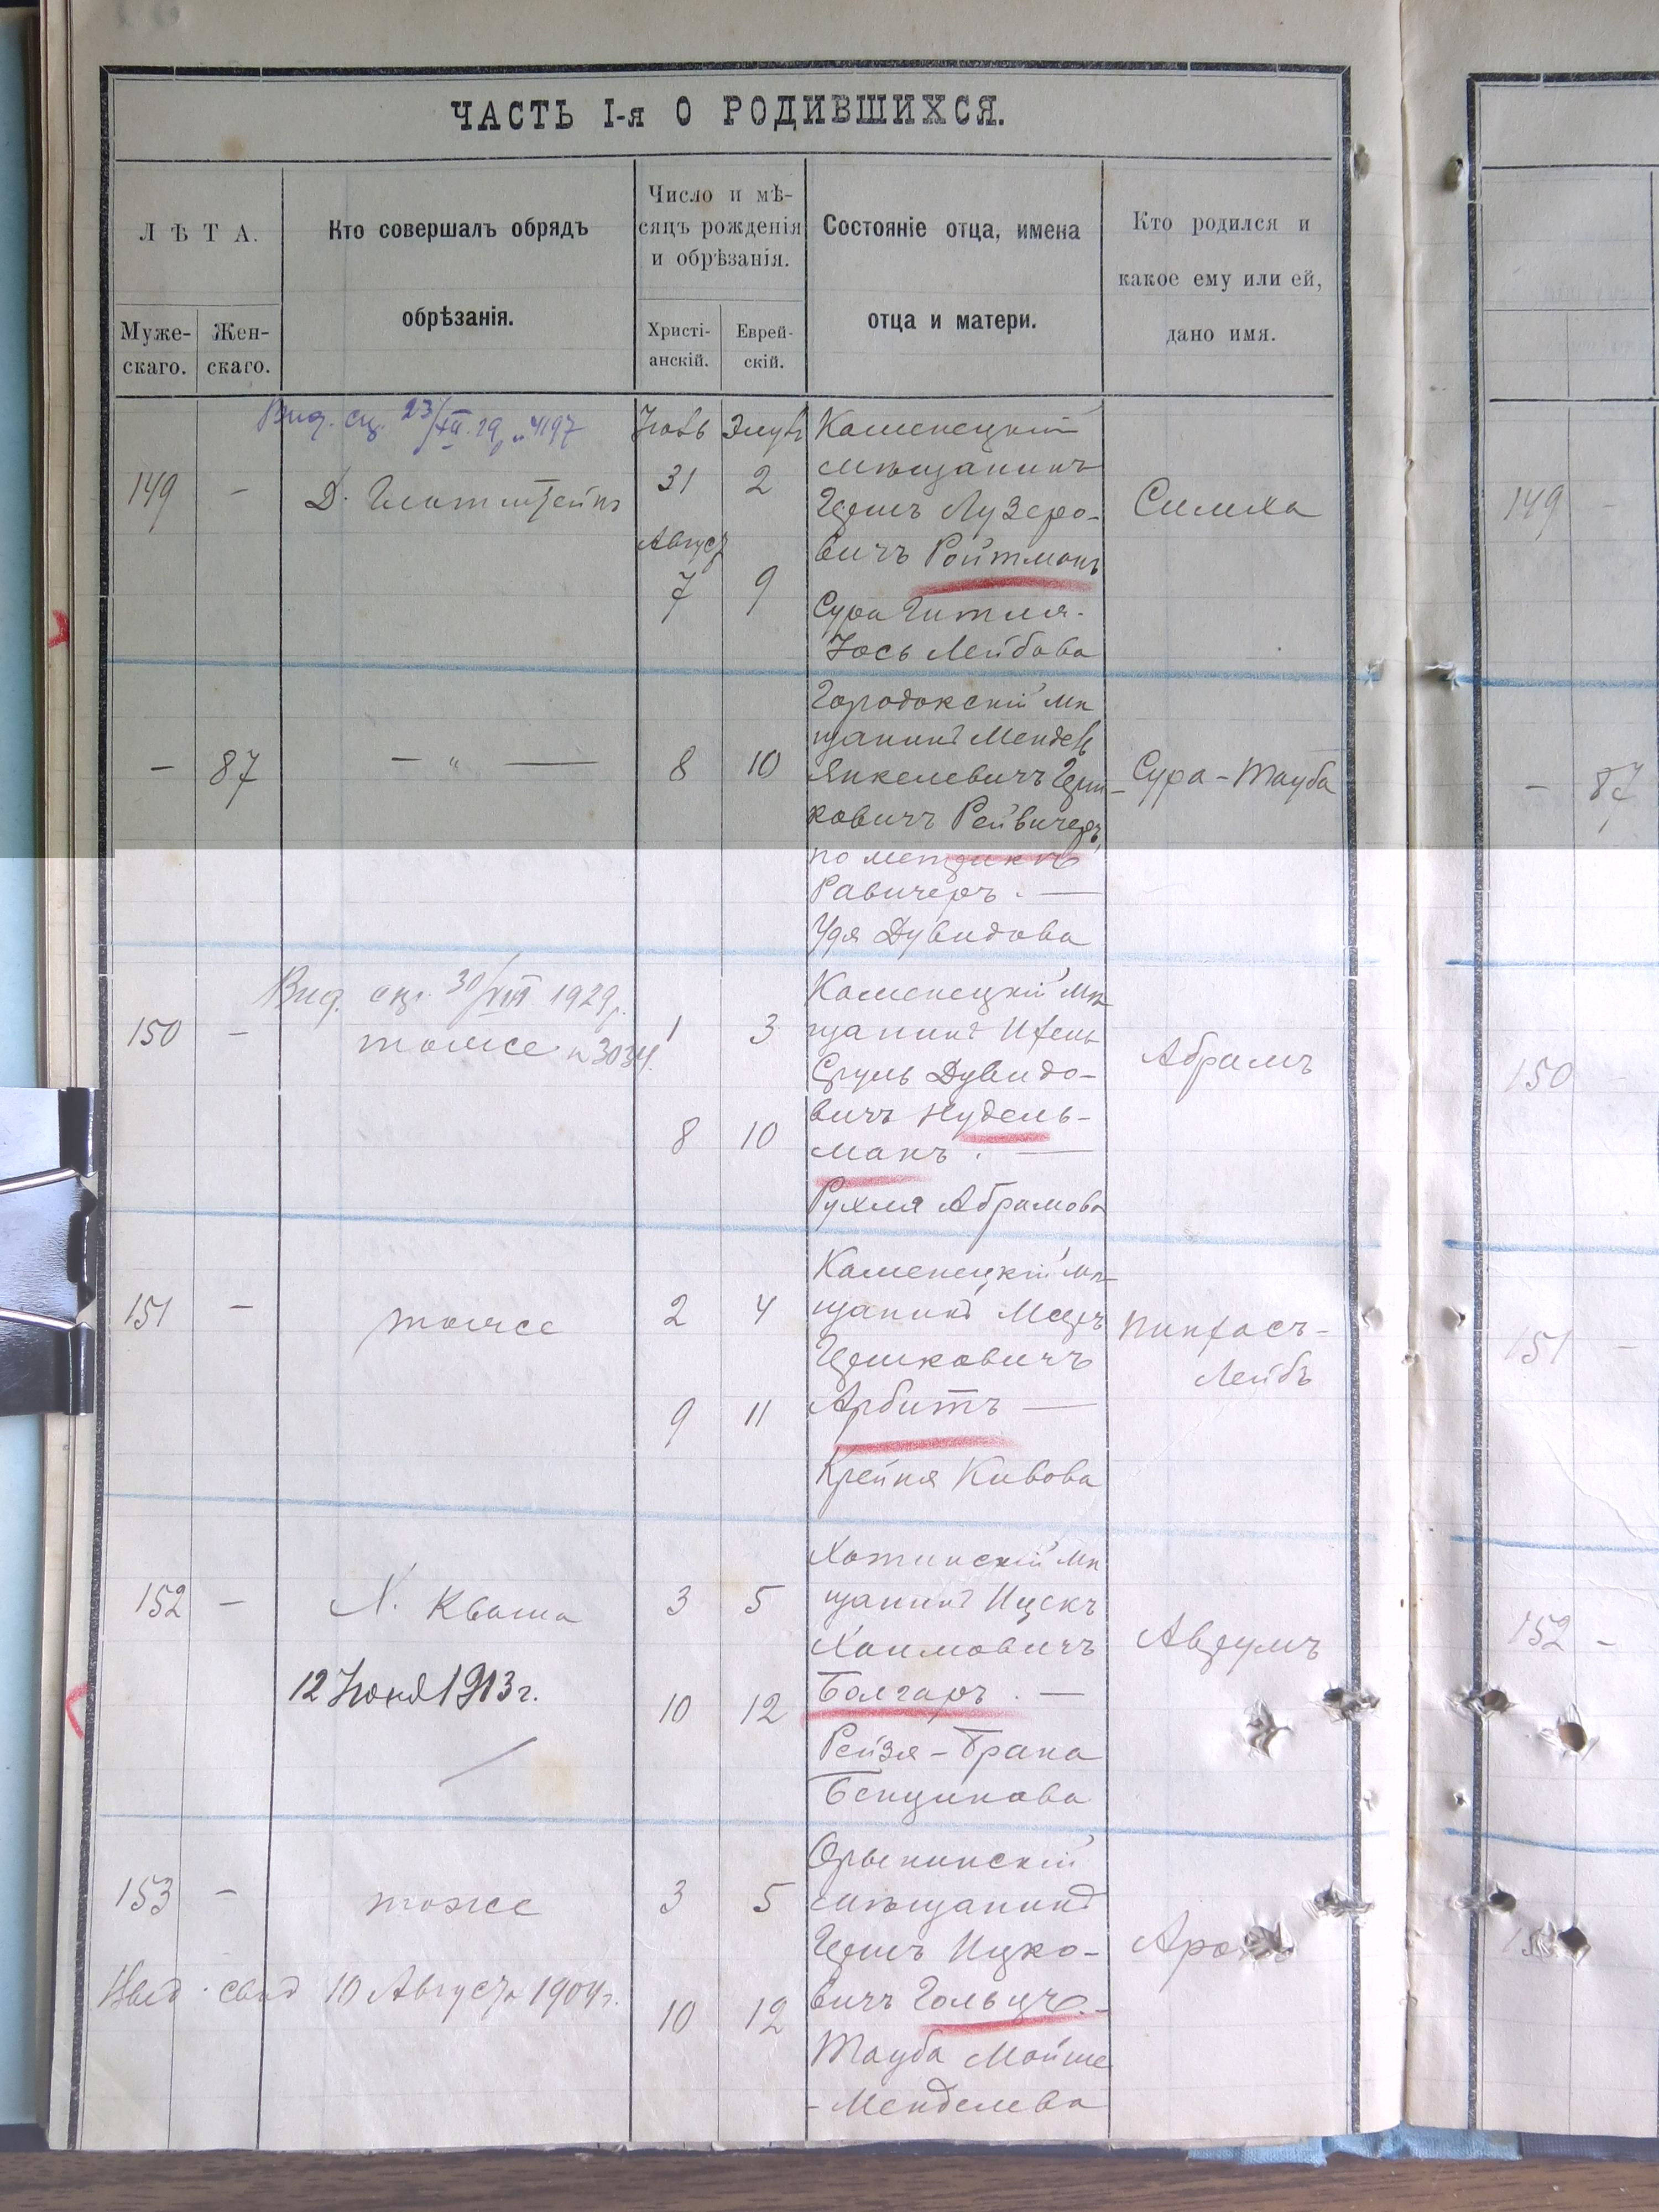 ЧАСТЬ I-я О РОДИВШИХСЯ.
ЛѢТА.
Муже-
скаго.
Жен-
скаго.
Кто совершалъ обрядъ
обрѣзанія.
Число и мѣ-
сяцъ рожденія
и обрѣзанія.
Христі-
анскій.
Еврей-
скій.
Состояніе отца, имена
отца и матери.
Кто родился и
какое ему или ей,
дано имя.
149
-
Вид.
23/XII 29
4197
Д.
31
2
7
9
Каменецкій
мѣщанинъ
Гершъ Лузеро-
вичъ Ройтманъ
Сура Гитля
Лейбова
Симха
-
87
— " —
8
10
Городокскій мѣ
щанинъ Мендель
Янкелевичъ Герш-
ковичъ Рейвичеръ,
по метрикѣ
Равичеръ. —
Удя Дувидова
Сура-Тауба
Вид. 30/VIII 1929 р.
150
-
тоже
н 3034.
1
3
8
10
Каменецкій мѣ
щанинъ
Сруль Дувидо-
вичъ Нудель-
манъ. —
Рухля Абрамова
Абрамъ
151
-
тоже
2
4
9
11
Каменецкій мѣ-
щанинъ Мееръ
Гершковичъ
Арбитъ —
Крейня Кивова
Пинхасъ-
Лейбъ
152
-
Х. Кваша
12 Июня 1913 г.
3
5
10
12
Хотинскій мѣ
щанинъ Ицекъ
Хаимовичъ
Болгаръ. —
Рейзя-Брана
Бенціонова
Аврумъ
153
-
тоже
10 Августа 1904 г.
3
5
10
12
Орынинскій
мѣщанинъ
Гершъ Ицко-
вичъ Гольцъ.-
Тауба Мойше
-Менделева
149
-
-
87
150
151
-
152
-